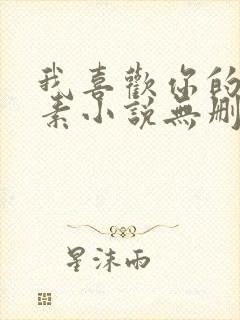 我喜歡你的
素小說無刪
星沫雨